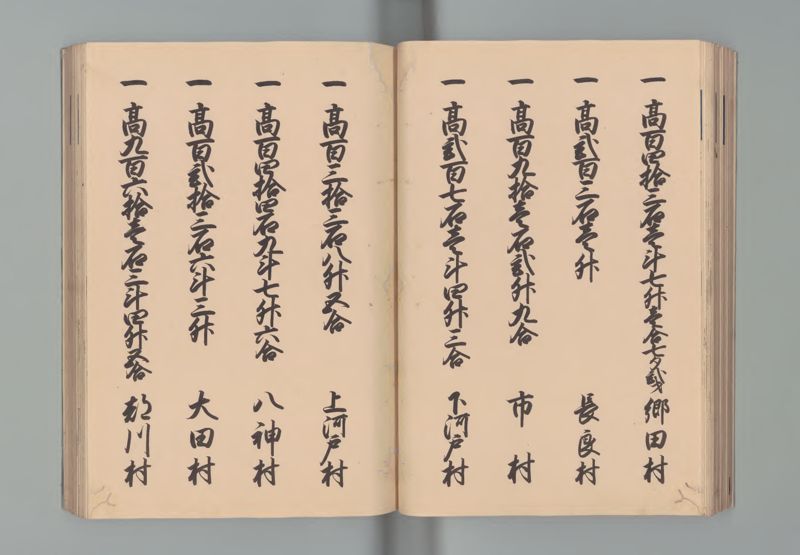 一 高百四拾三石壱斗七升壱合七夕弐 郷田村
一 高弐百三石壱升 長良村
一 高百九拾壱石弐升九合 市村
一 高弐百七石壱斗四升三合 下河戸村
一 高百三拾三石八升五合 上河戸村
一 高百四拾四石九斗七升六合 八神村
一 高百弐拾三石六斗三升 大田村
一 高九百六拾壱石三斗四升五合 川村